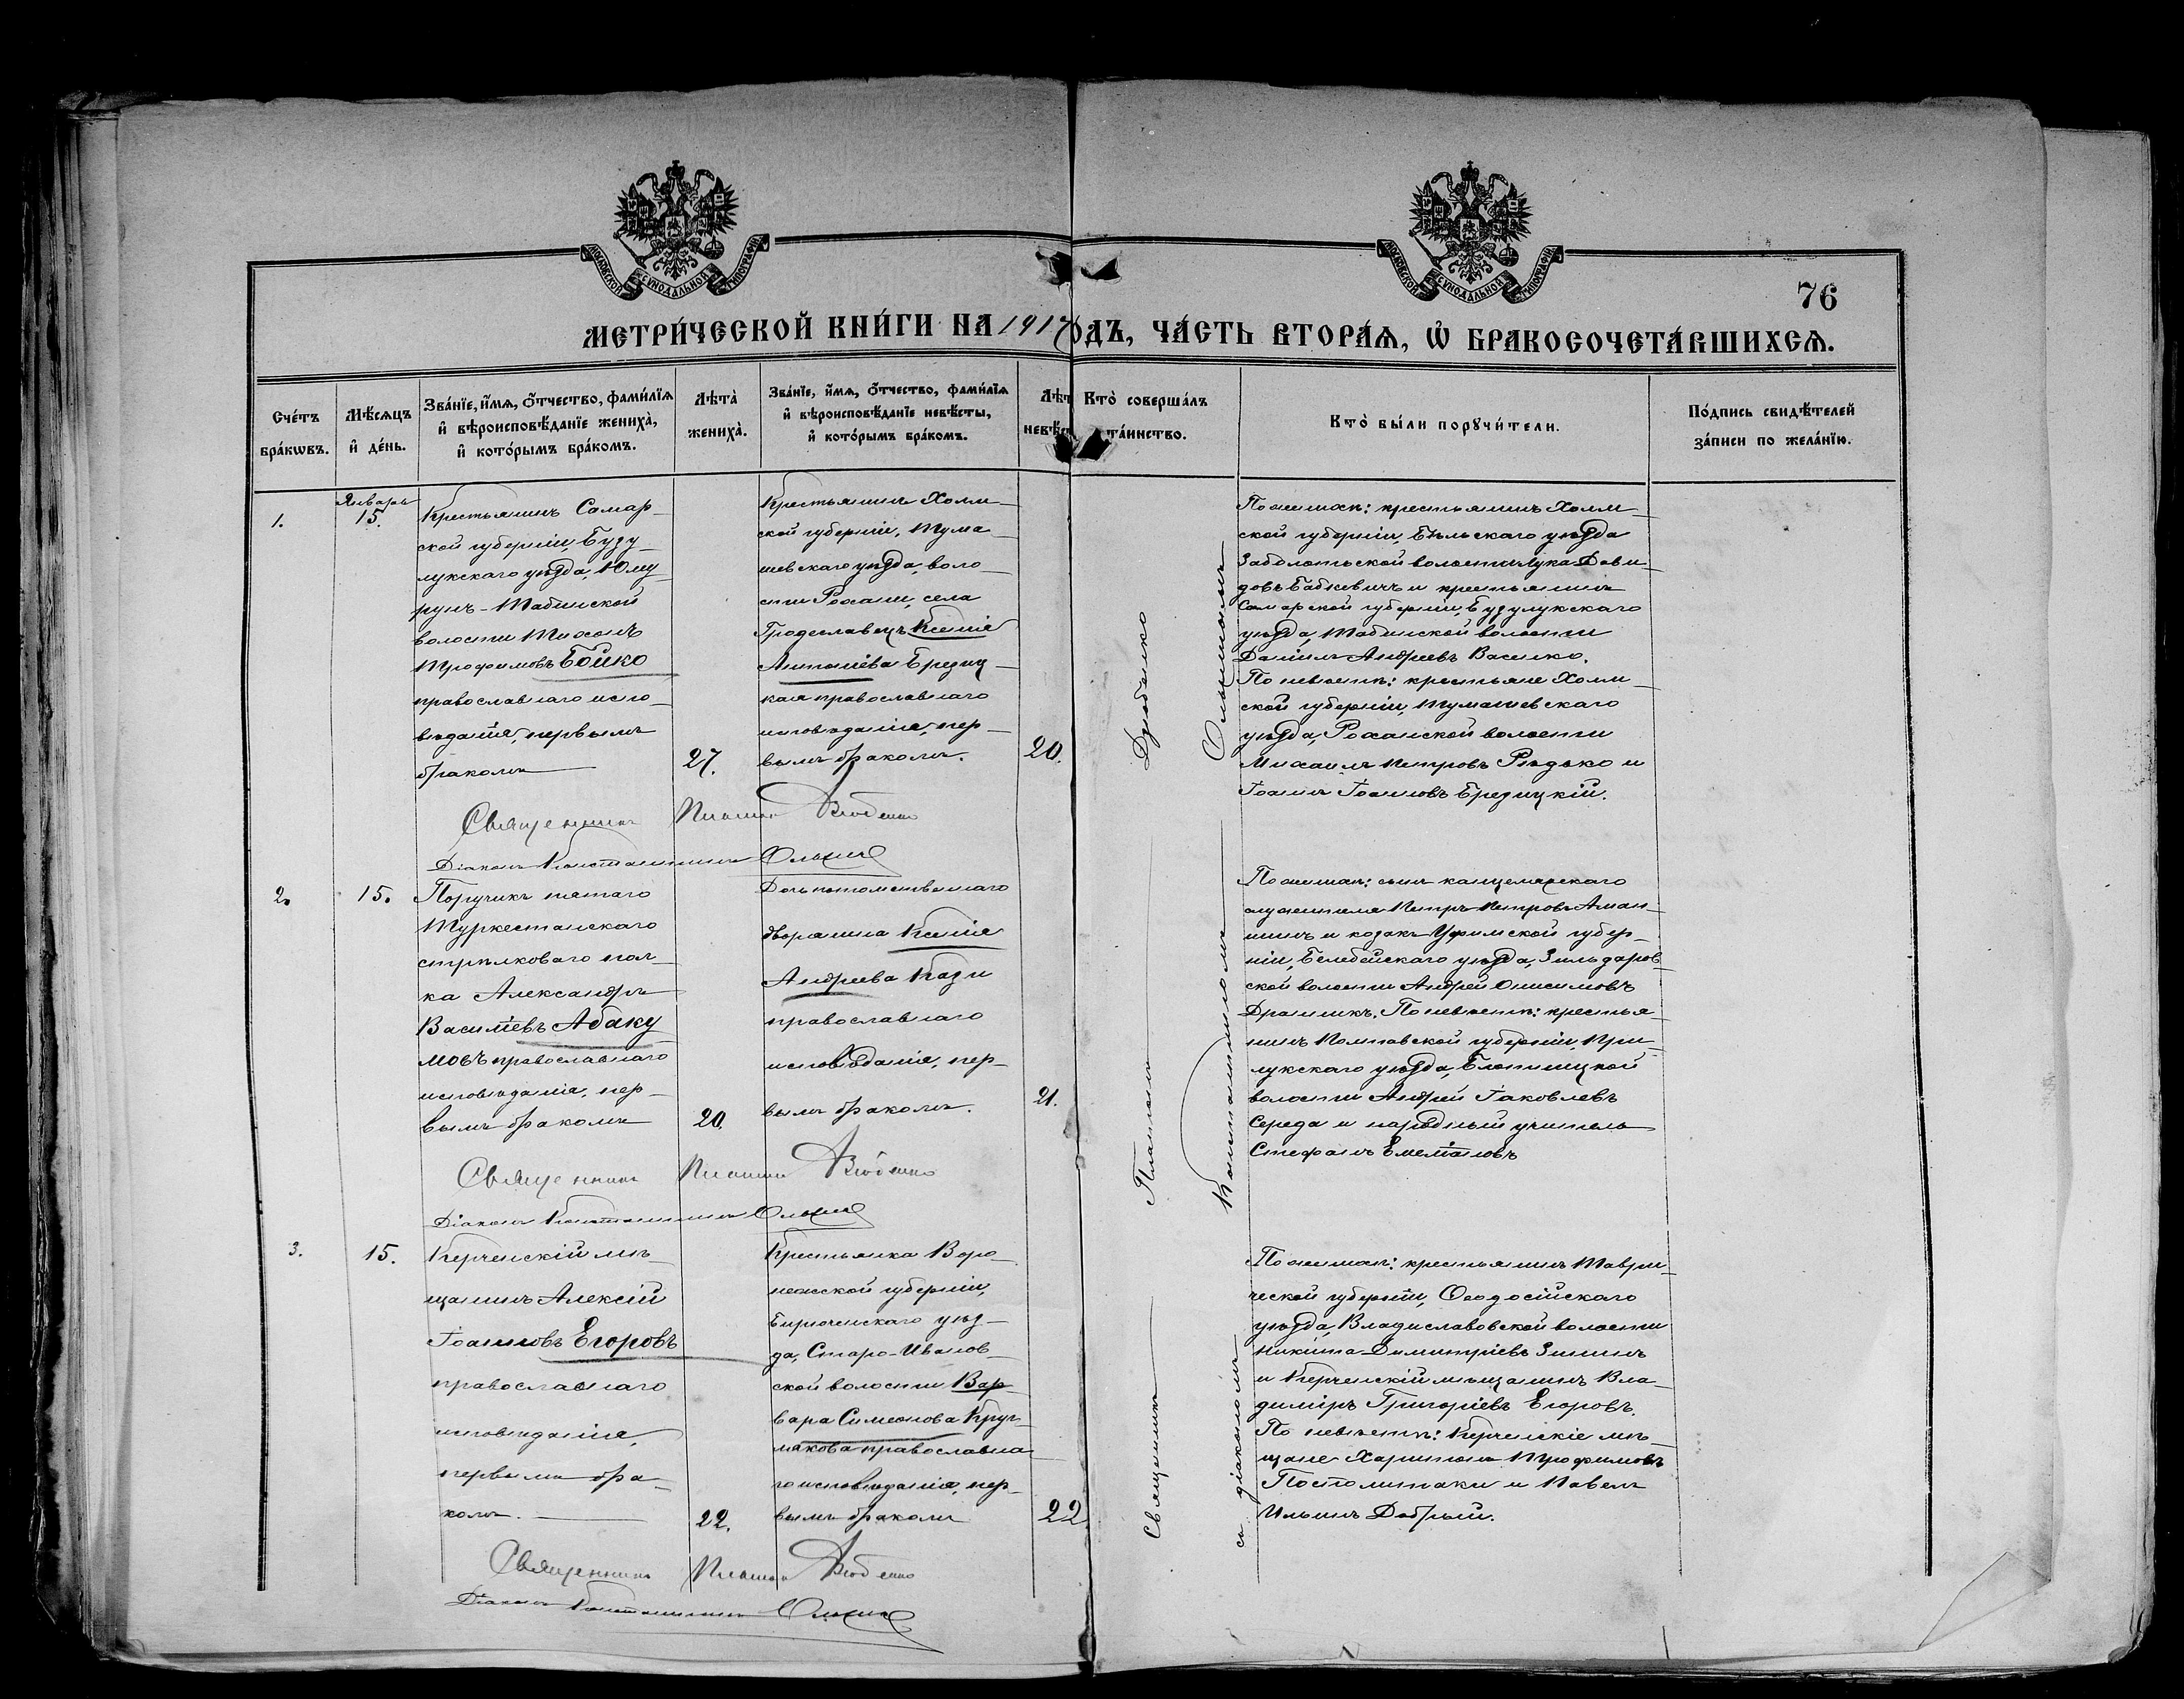 МОСКОВСКОЙ СѴНОДАЛЬНОЙ ТИПОГРАФІИ
МОСКОВСКОЙ СѴНОДАЛЬНОЙ ТИПОГРАФІИ
76
МЕТРИ́ЧЕСКОЙ КНИ́ГИ НА 1917 ОДЪ, ЧА́СТЬ ВТОРА́Ѧ, Ѡ҆ БРАКОСОЧЕТА́ВШИХСѦ.
Сче́тъ бра́кѡвъ.
Мѣ́сѧцъ и҆ де́нь.
Зва́нїе, и҆́мѧ, ѻ҆́тчество, фами́лїѧ и҆ вѣроисповѣ́данїе жениха̀, и҆ кото́рымъ бра́комъ.
Лѣта̀ жениха̀.
Зва́нїе, и҆́мѧ, ѻ҆́тчество, фами́лїѧ и҆ вѣроисповѣ́данїе невѣ́сты, и҆ кото́рымъ бра́комъ.
Лѣт невѣст
Кто̀ соверша́лъ та́инство.
Кто̀ бы́ли порꙋчи́тели.
По́дпись свидѣ́телей за́писи по жела́нїю.
1.
Январь
15.
Крестьянинъ Самар-
ской губерніи, Бузу-
лукскаго уѣзда, Юму-
рунъ-Табынской
волости Тихонъ
Трофимовъ Бойко
православнаго испо-
вѣданія, первымъ
бракомъ
27.
Холм-
ской губерніи, Тома-
шевскаго уѣзда, воло-
сти Рахани, села
Гродславецъ Ксенія
Антоніева Бредиц-
кая православнаго
исповѣданія, пер-
вымъ бракомъ.
20.
По женихѣ: крестьянинъ Холм-
ской губерніи, Бѣльскаго уѣзда
Заболотьской волости Лука Дави-
довъ Бабкевичъ и крестьянинъ
Самарской губерніи, Бузулукскаго
уѣзда, Табынской волости
Даніилъ Андреевъ Василко.
По невѣстѣ: крестьяне Холм-
ской губерніи, Тумашевскаго
уѣзда, Роханской волости
Михаилъ Петровъ Рѣдько и
Іоаннъ Іоанновъ Бредицкій.
Священникъ Платонъ
Діаконъ Константинъ
2.
15.
Поручикъ пятаго
Туркестанскаго
стрѣлковаго пол-
ка Александръ
Василіевъ Абаку
мовъ православнаго
исповѣданія, пер-
вымъ бракомъ
20.
Дочь потомственнаго
дворянина Ксенія
Андреева Кази
православнаго
исповѣданія, пер-
вымъ бракомъ.
21.
По женихѣ: сынъ канцелярскаго
служителя Петръ Петровъ Аман-
шинъ и козакъ Уфимской губер-
ніи, Белебейскаго уѣзда, Зильдаров-
ской волости Андрей Онисимовъ
По невѣстѣ: крестья-
нинъ Полтавской губерніи, При-
лукскаго уѣзда,
волости Андрей Іаковлевъ
Середа и народный учитель
Стефанъ Емеліановъ
Священникъ Платонъ
Діаконъ Константинъ
3.
15.
Керченскій мѣ-
щанинъ Алексій
Іоанновъ Егоровъ
православнаго
исповѣданія,
первымъ бра-
комъ.
22.
Крестьянка Воро-
нежской губерніи,
Бирюченскаго уѣз-
да, Старо-Иванов-
ской волости Вар-
вара Симеонова Круч-
макова православна
го исповѣданія, пер-
вымъ бракомъ
22
По женихѣ: крестьянинъ Таври-
ческой губерніи, Ѳеодосійскаго
уѣзда, Владиславовской волости
Никита Димитріевъ Зининъ
и Керченскій мѣщанинъ Вла-
диміръ Григоріевъ Егоровъ.
По невѣстѣ: Керченскіе мѣ-
щане Харитонъ Трофимовъ
Постолитаки и Павелъ
Ильинъ Добрый.
Священникъ Платонъ
Діаконъ Константинъ
Священникъ Платонъ
съ діакономъ Константиномъ